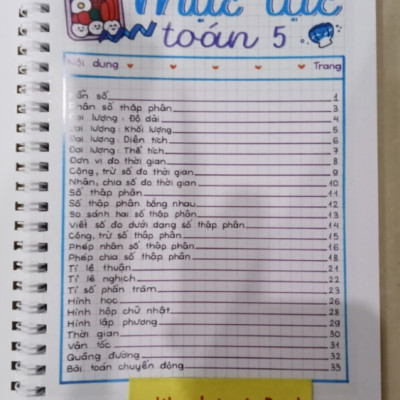 Mục lục
toán 5
Nội dung Trang
số 1
Phân số thập phân 3
Đại lượng: Độ dài 4
Đại lượng: Khối lượng 5
Đại lượng: Diện tích 6
Đại lượng: Thể tích 7
Đơn vị đo thời gian 8
Cộng, trừ số đo thời gian 9
Nhân, chia số đo thời gian 10
Số thập phân 11
Số thập phân bằng nhau 12
So sánh hai số thập phân 13
Viết số đo dưới dạng số thập phân 14
Cộng, trừ số thập phân 15
Phép nhân số thập phân 16
Phép chia số thập phân 18
Tỉ lệ thuận 21
Tỉ lệ nghịch 22
Tỉ số phần trăm 23
Hình học 26
Hình hộp chữ nhật 28
Hình lập phương 29
Thời gian 30
Vận tốc 31
Quãng đường 32
Bài toán chuyển động 33